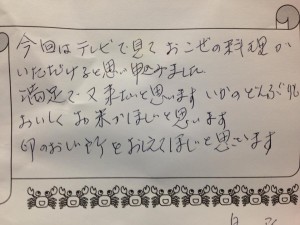 今回はテレビで見ておこぜの料理が
いただけると思い申込みました
満足で又来たいと思います いかのどんぶりも
おいしく お米がほしいと思います
印のおしい所をおしえてほしいと思います